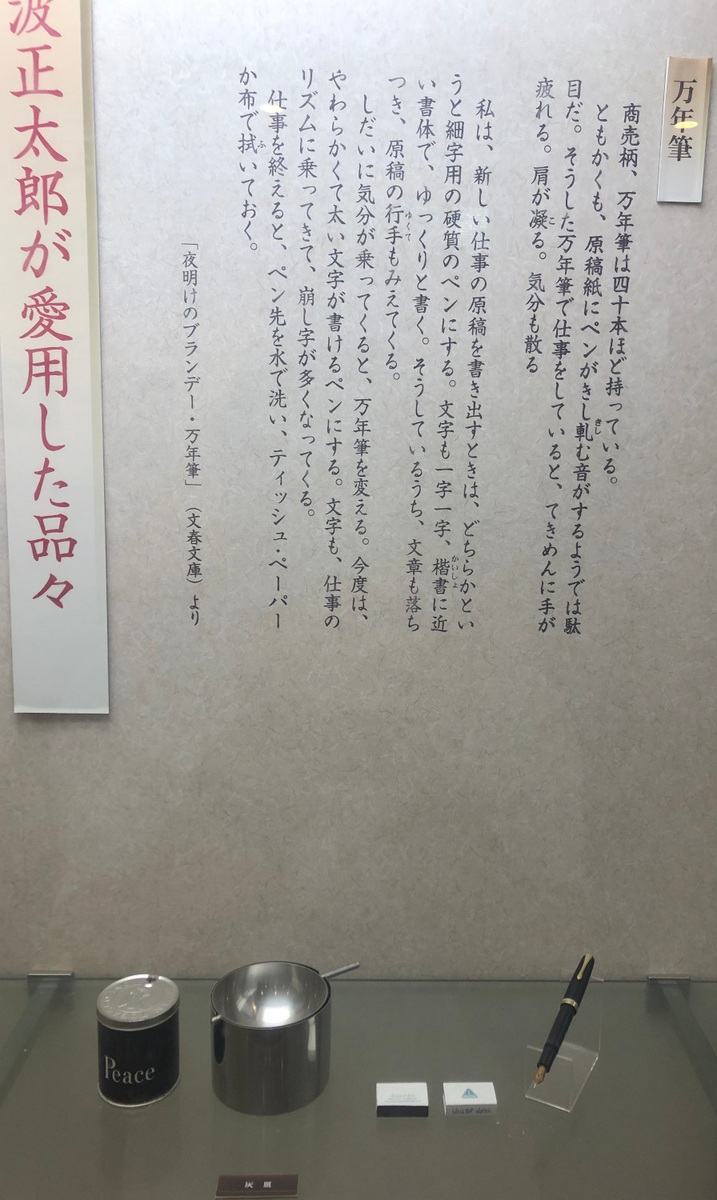 万年筆
商売柄、万年筆は四十本ほど持っている。
ともかくも、原稿紙にペンがきし軋む音がするようでは駄
目だ。そうした万年筆で仕事をしていると、てきめんに手が
疲れる。肩が凝る。気分も散る
私は、新しい仕事の原稿を書き出すときは、どちらかとい
うと細字用の硬質のペンにする。文字も一字一字、楷書に近
い書体で、ゆっくりと書く。そうしているうち、文章も落ち
つき、原稿の行手もみえてくる。
しだいに気分が乗ってくると、万年筆を変える。今度は、
やわらかくて太い文字が書けるペンにする。文字も、仕事の
リズムに乗ってきて、崩し字が多くなってくる。
仕事を終えると、ペン先を水で洗い、ティッシュ・ペーパー
か布で拭いておく。
「夜明けのブランデー・万年筆」（文春文庫）より
波正太郎が愛用した品々
Peace
灰皿